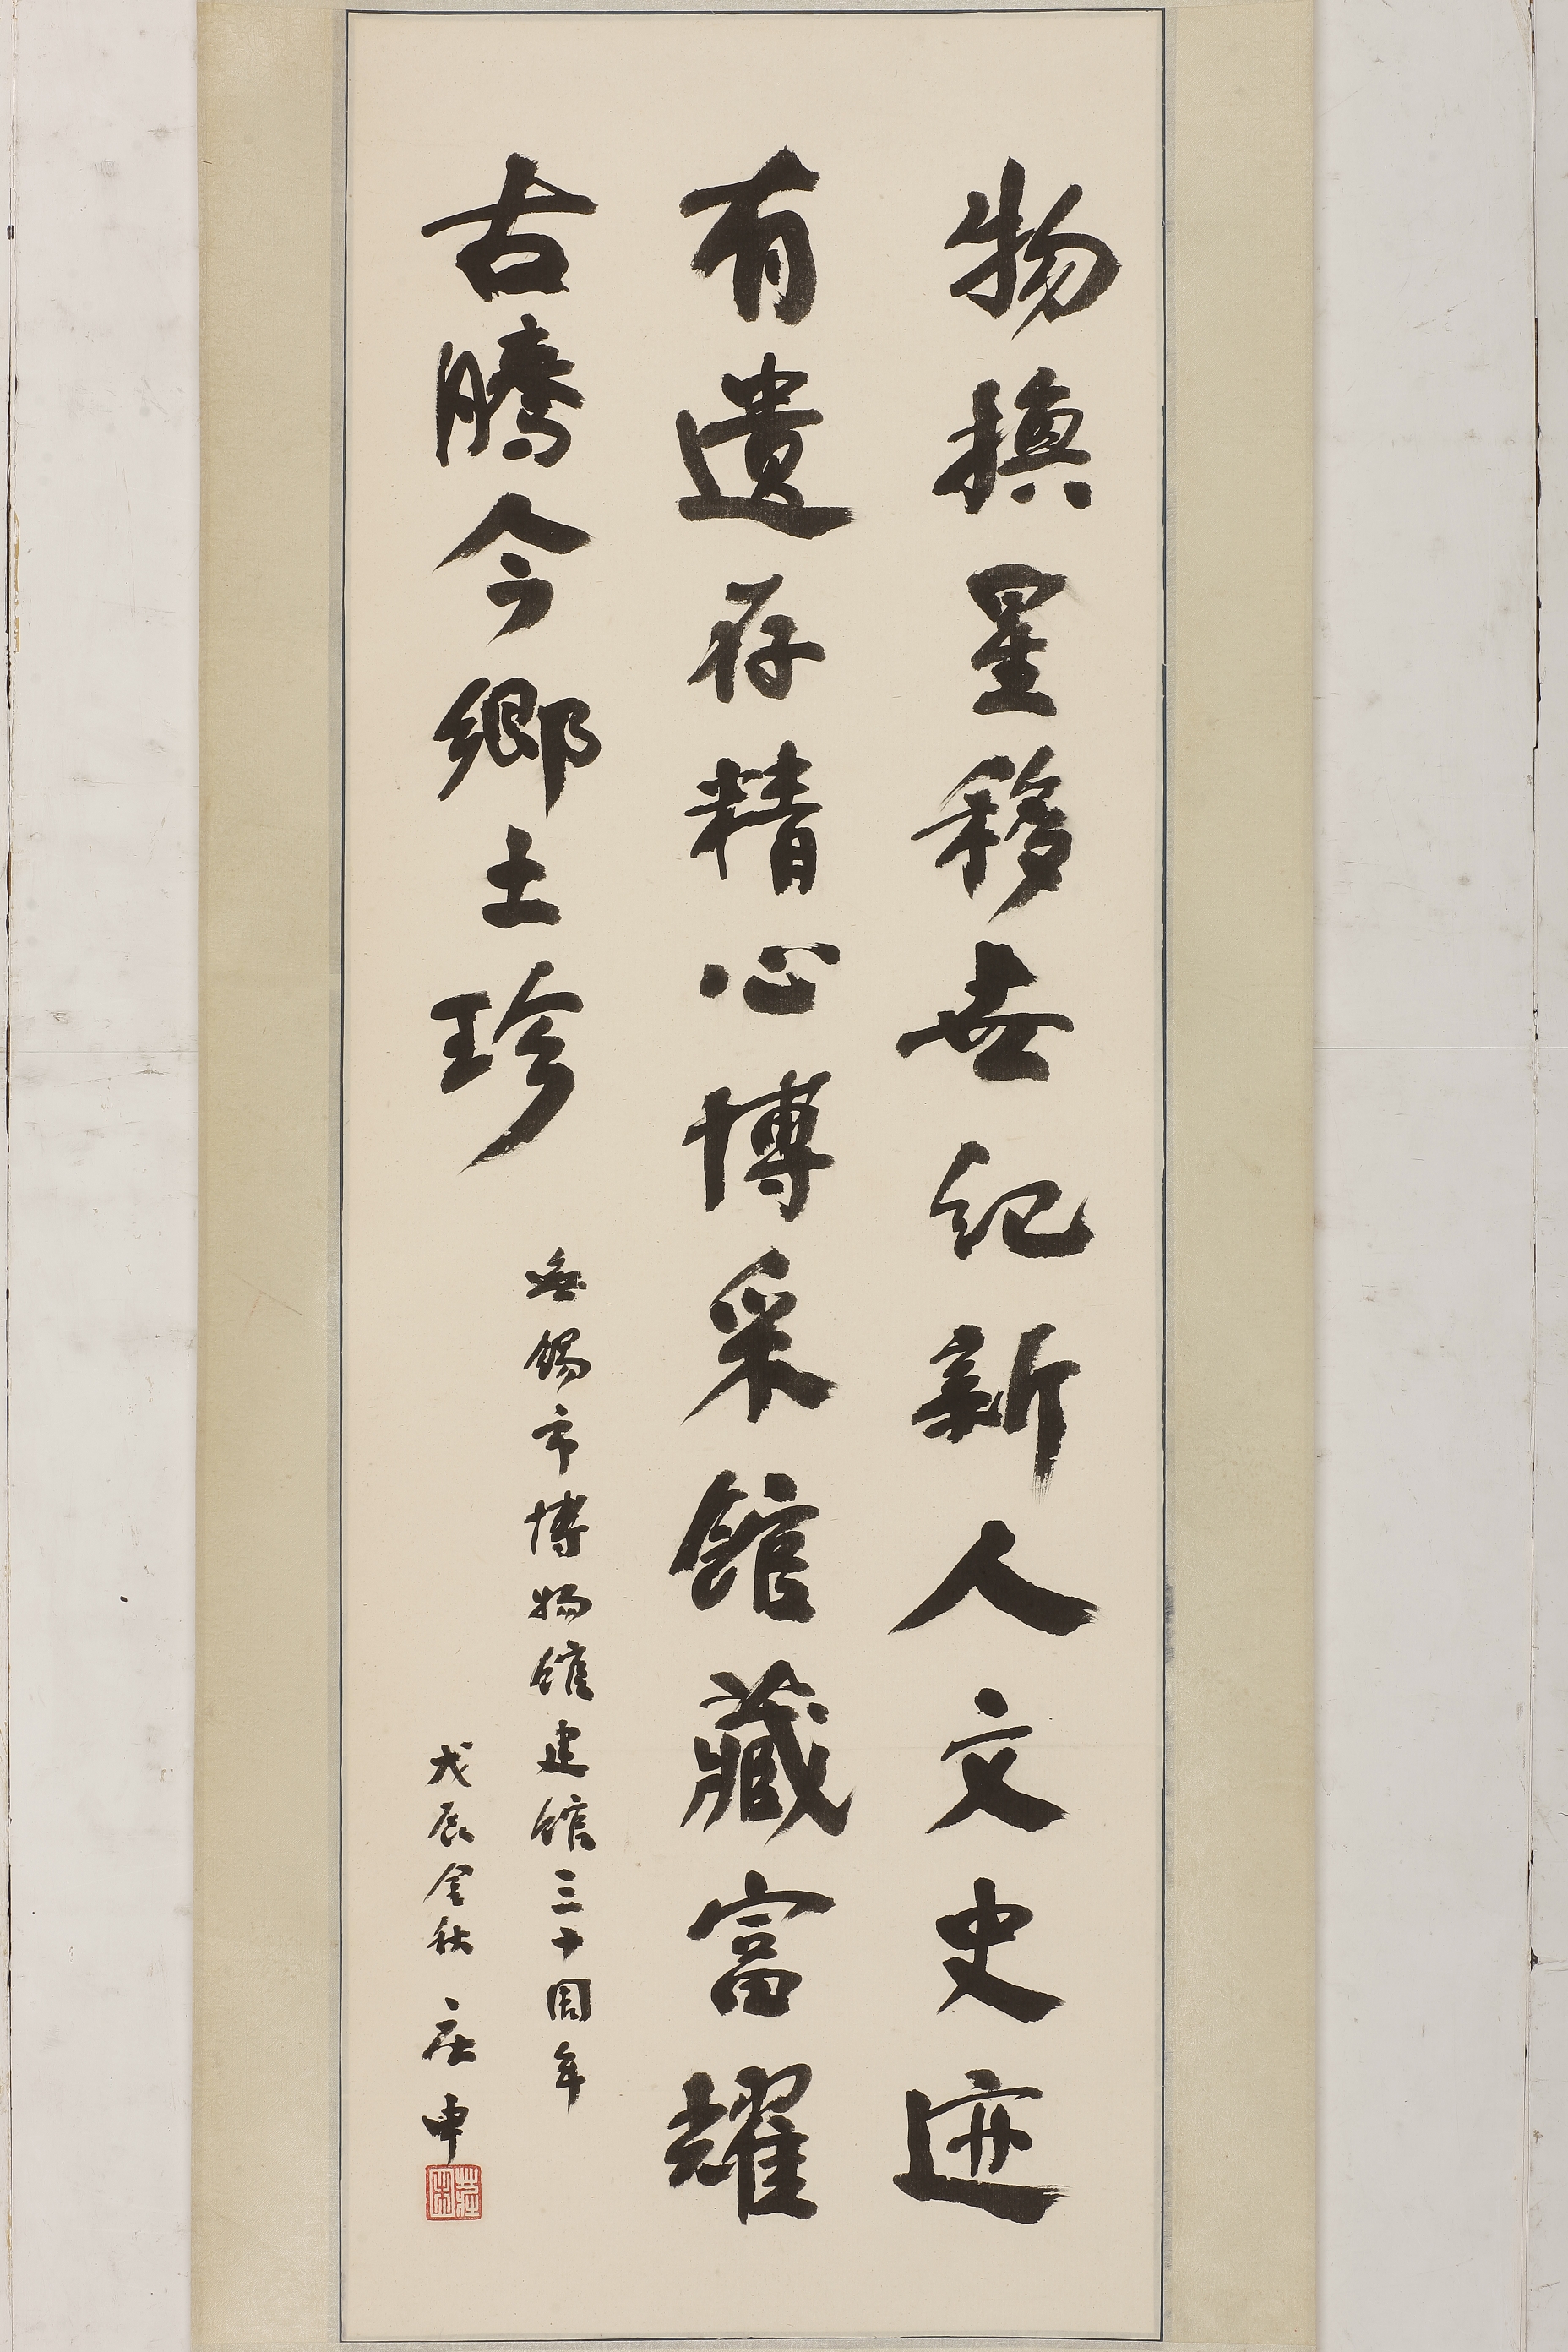 物換星移世纪新人文史迹
有遗存精心博采館藏富耀
古騰今鄉土珍
無锡市博物馆建馆三十周年
戊辰金秋 庄申